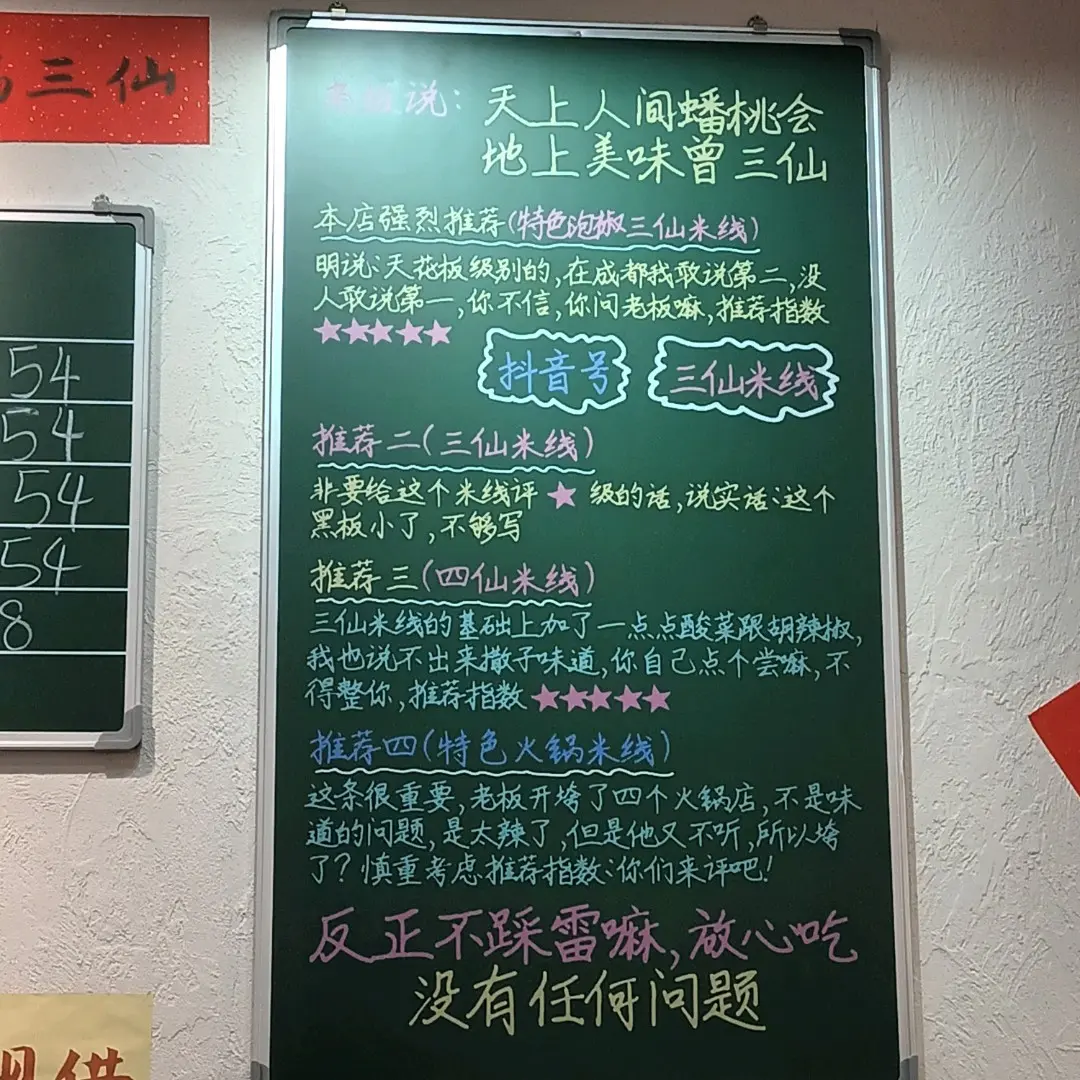 三仙
说：天上人间蟠桃会
地上美味曾三仙
本店强烈推荐(特色泡椒三仙米线)
明说：天花板级别的，在成都我敢说第二，没
人敢说第一，你不信，你问老板嘛，推荐指数
★★★★★
抖音号
三仙米线
推荐二(三仙米线)
非要给这个米线评★级的话，说实话：这个
黑板小了，不够写
推荐三(四仙米线)
三仙米线的基础上加了一点点酸菜跟胡辣椒，
我也说不出来撒子味道，你自己点个尝嘛，不
得整你，推荐指数★★★★★
推荐四(特色火锅米线)
这条很重要，老板开垮了四个火锅店，不是味
道的问题，是太辣了，但是他又不听，所以垮
了？慎重考虑推荐指数：你们来评吧！
反正不踩雷嘛，放心吃
没有任何问题
54
54
54
54
8